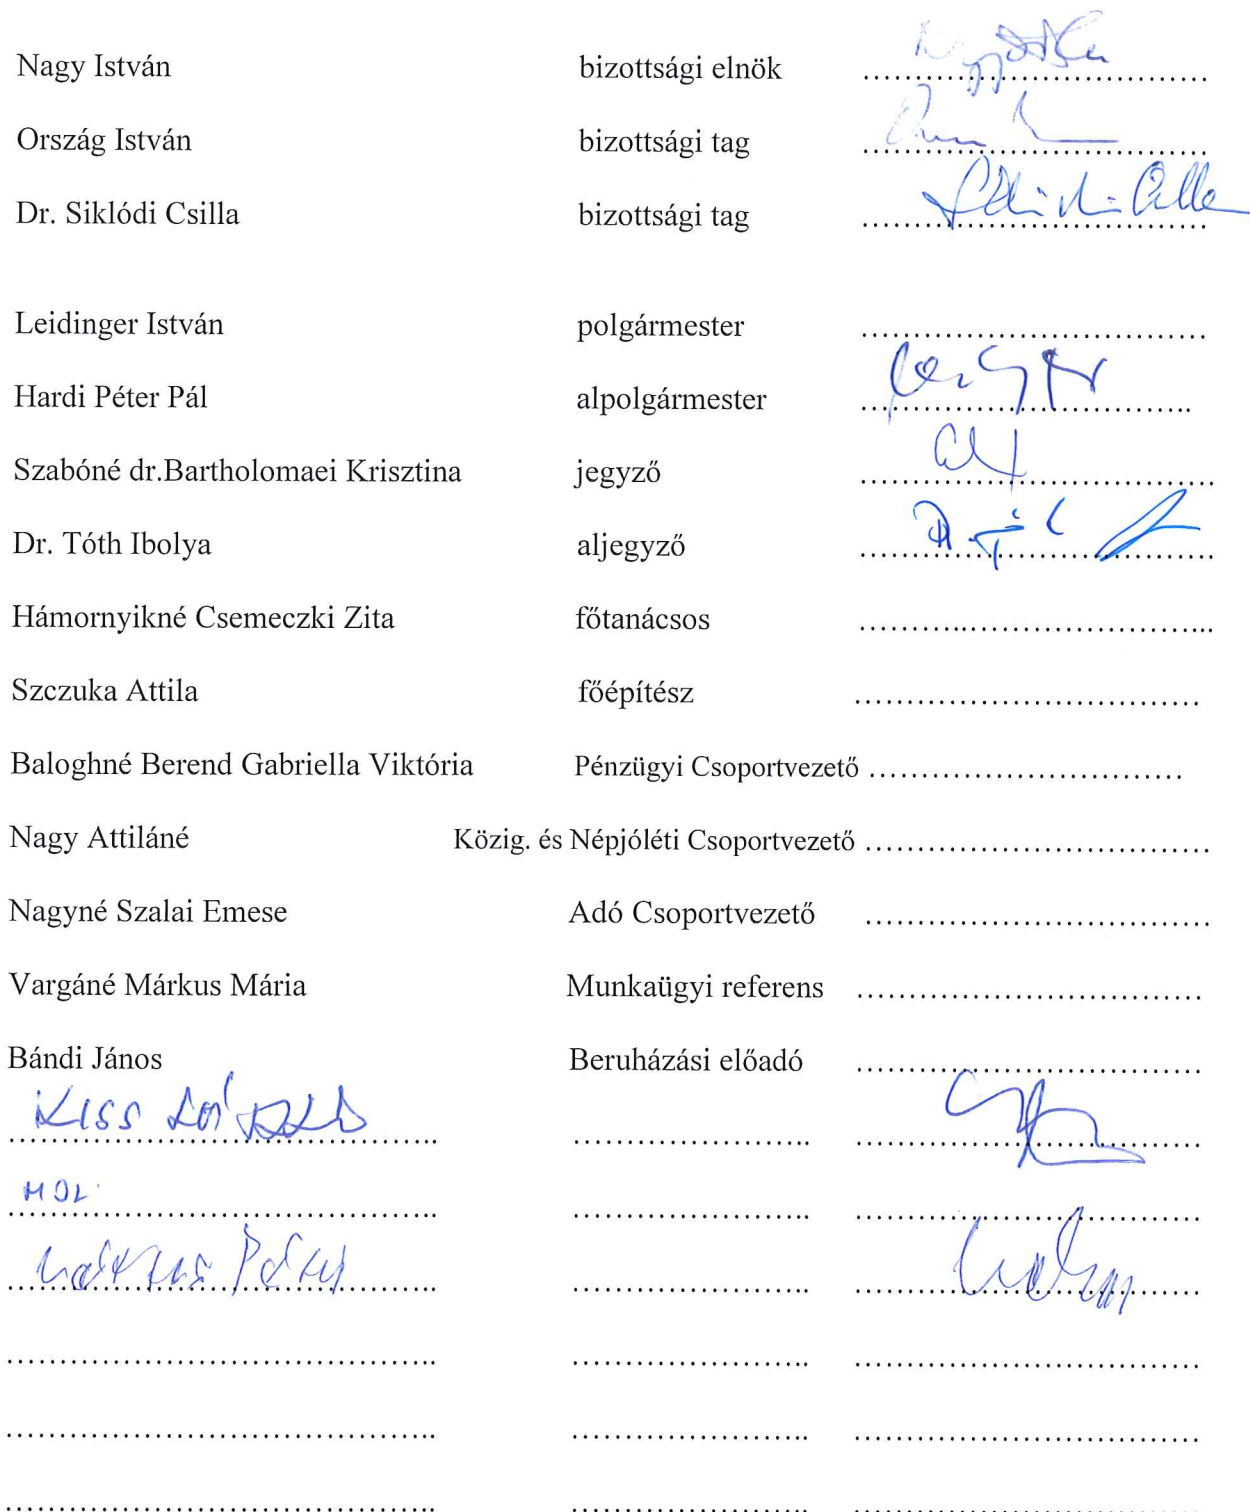 Nagy István bizottsági elnök ........................................
Ország István bizottsági tag ........................................
Dr. Siklódi Csilla bizottsági tag ........................................
Leidinger István polgármester ........................................
Hardi Péter Pál alpolgármester ........................................
Szabóné dr.Bartholomaei Krisztina jegyző ........................................
Dr. Tóth Ibolya aljegyző ........................................
Hámornyikné Csemeczki Zita főtanácsos ........................................
Szczuka Attila főépítész ........................................
Baloghné Berend Gabriella Viktória Pénzügyi Csoportvezető ........................................
Nagy Attiláné Közig. és Népjóléti Csoportvezető ........................................
Nagyné Szalai Emese Adó Csoportvezető ........................................
Vargáné Márkus Mária Munkaügyi referens ........................................
Bándi János Beruházási előadó ........................................
KISS LÁSZLÓ
MOL